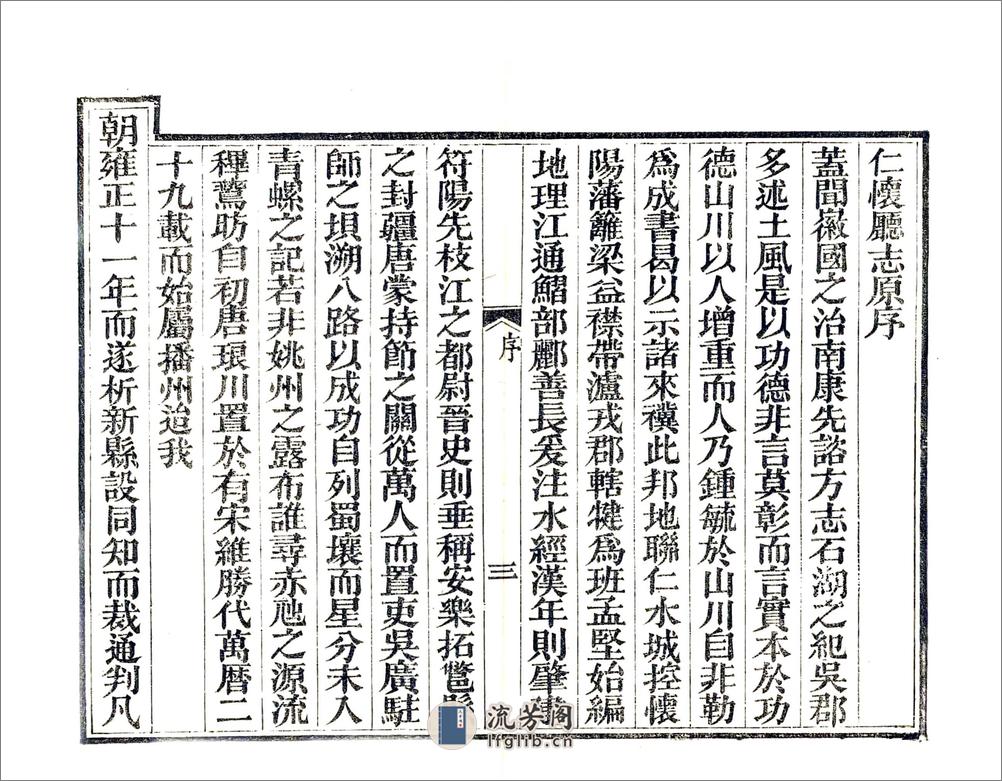 仁懷廳志原序
蓋聞徽國之治南康先諮方志石湖之紀吳郡
多述土風是以功德非言莫彰而言實本於功
德山川以人增重而人乃鍾毓於山川自非勒
爲成書曷以示諸來禩此邦地聯仁水城控懷
陽藩籬梁益襟帶瀘戎郡轄犍爲班孟堅始編
地理江通鰼部酈善長爰注水經漢年則肇
序
三
符陽先枝江之都尉晉史則垂稱安樂拓鄨縣
之封疆唐蒙持節之關從萬人而置吏吳廣駐
師之壩溯八路以成功自列蜀壤而星分未入
青螺之記若非姚州之露布誰尋赤虺之源流
稺鷟昉自初唐琅川置於有宋維勝代萬曆二
十九載而始屬播州迨我
朝雍正十一年而遂析新縣設同知而裁通判凡
流芳閣
lfglib.cn